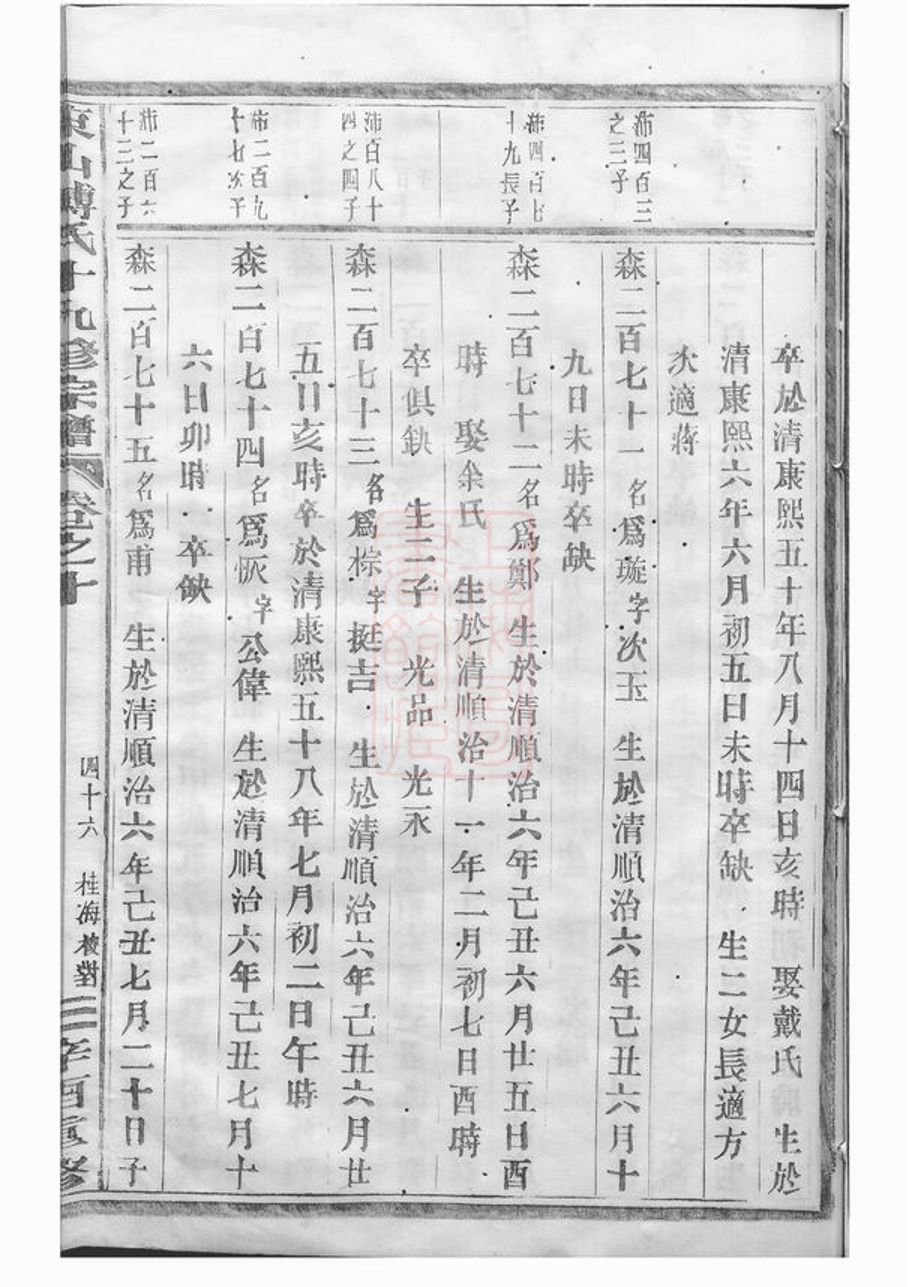 卒於清康熙五十年八月十四日亥時 娶戴氏 生於
清康熙六年六月初五日未時卒缺 生二女長適方
次適蔣
沛四百三
之三子
森二百七十一名爲璇字次玉 生於清順治六年己丑六月十
九日未時卒缺
沛四百七
十九長子
森二百七十二名爲鄭 生於清順治六年己丑六月廿五日酉
時 娶余氏 生於清順治十一年二月初七日酉時
卒俱缺 生二子 光品 光永
沛百八十
四之四子
森二百七十三名爲棕字挺吉 生於清順治六年己丑六月廿
五日亥時卒於清康熙五十八年七月初二日午時
沛二百九
十七次子
森二百七十四名爲恢字公偉 生於清順治六年己丑七月十
六日卯時 卒缺
沛二百六
十三之子
森二百七十五名爲甫 生於清順治六年己丑七月二十日子
東山傅氏十九修宗譜 卷之十
四十六 桂海校對
辛酉重修